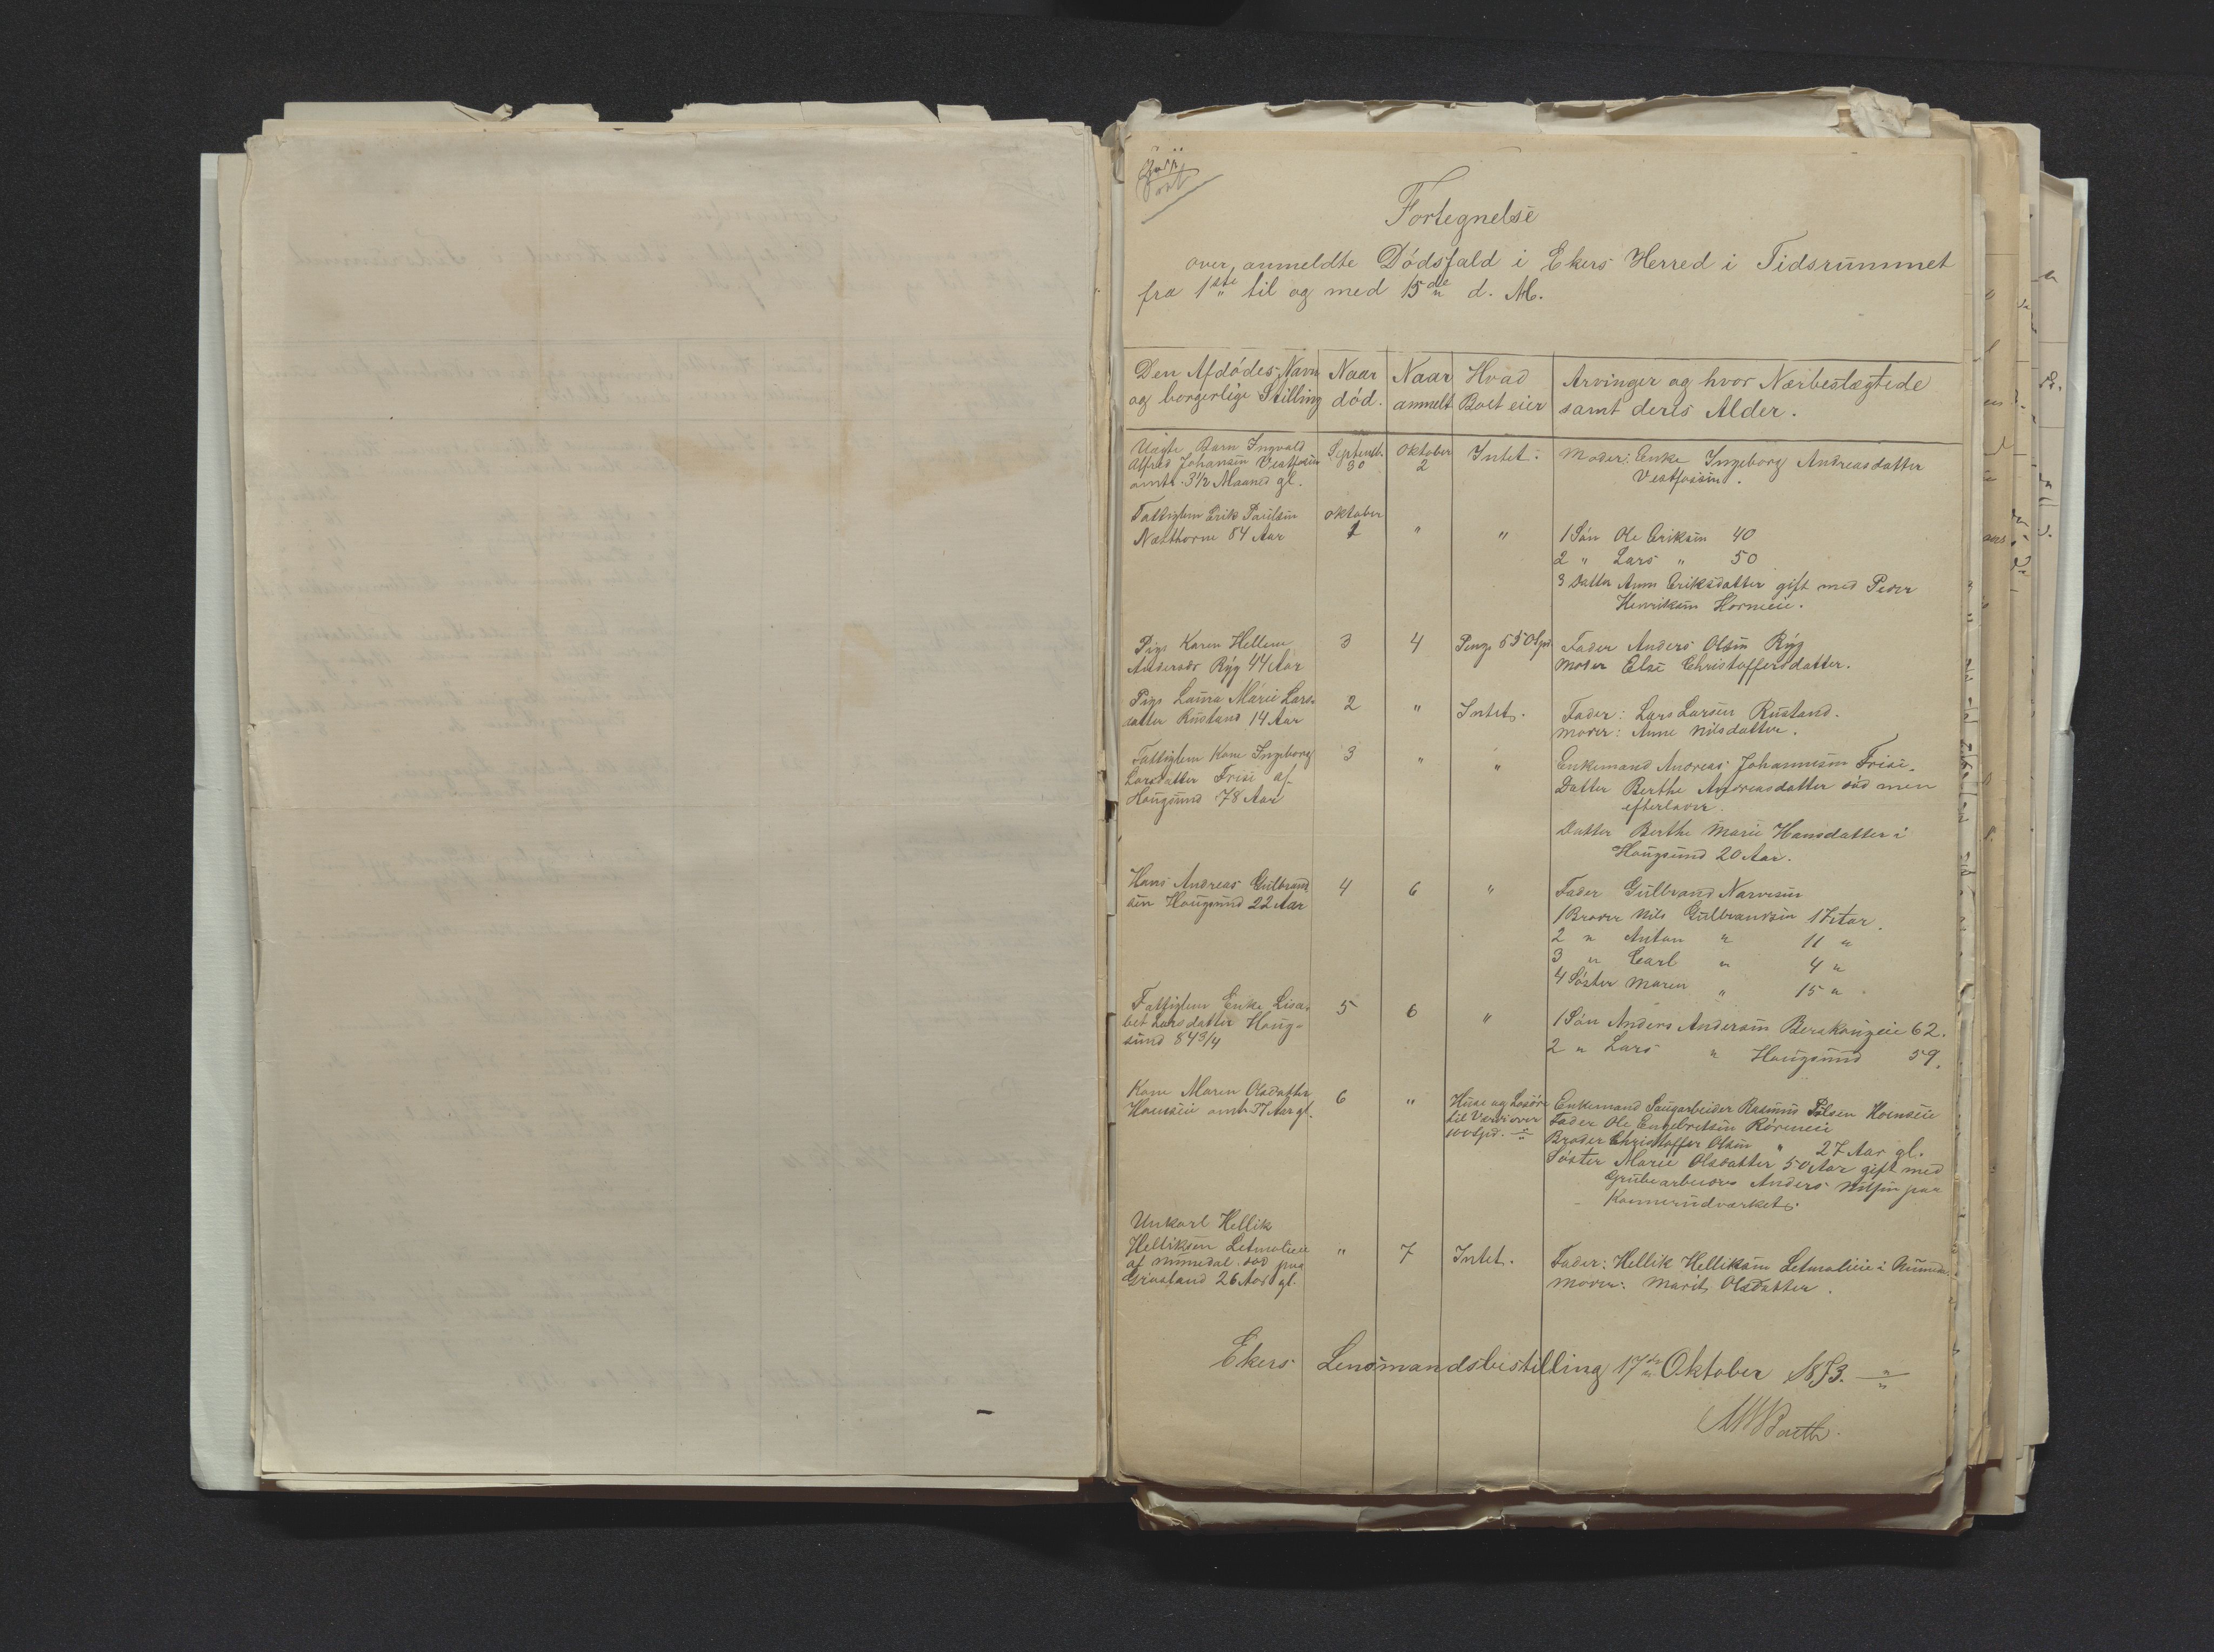 Fortegnelse
over anmeldte Dödsfald i Ekers Herred i Tidsrummet
fra 1ste til og med 15de d. M.
Den Afdödes Navn og borgerlige Stilling
Naar död.
Naar anmelt
Hvad Boet eier
Arvinger og hvor Nærbeslægtede samt deres Alder.
Uægte Barn Ingvald
Alfred Johansen Vestfossen
omtr. 3 1/2 Maaned gl.
Septemb. 30
Oktober 2
Intet.
Moder: Enke Ingeborg Andreasdatter
Vestfossen.
Fattiglem Erik Paulsen
84 Aar
Oktober 1
"
"
1 Sön Ole Eriksen 40
2 " Lars " 50
3 Datter Anne Eriksdatter gift med Peder
Henriksen Horneie.
Pige Karen Hellene
Andersdr Ryg 44 Aar
3
4
Penge 550 Spd
Fader Anders Olsen Ryg
Moder Else Christoffersdatter.
Pige Laura Marie Lars-
datter Rustand 14 Aar
2
"
Intet.
Fader: Lars Larsen Rustand.
Moder: Anne Nilsdatter.
Fattiglem Kone Ingeborg
Larsdatter Frisei af
Hougsund 78 Aar
3
"
"
Enkemand Andreas Johannesen Frisei.
Datter Berthe Andreasdatter död men
efterlader.
Datter Berthe Marie Hansdatter i
Hougsund 20 Aar.
Hans Andreas Gulbrand
sen Hougsund 22 Aar
4
6
"
Fader Gulbrand Narvesen
1 Broder Nils Gulbrandsen 17 Aar.
2 " Anton " 11 "
3 " Carl " 4 "
4 Söster Maren " 15 "
Fattiglem Enke Lisa-
bet Larsdatter Houg-
sund 84 3/4
5
6
"
1 Sön Anders Andersen 62.
2 " Lars " Hougsund 59.
Kone Maren Olsdatter
Horneseie omtr 37 Aar gl.
6
"
Huse og Lösöre
til Værdi over
100 Spd.
Enkemand Saugarbeider Rasmus Pålsen Horneseie
Fader Ole Engebretsen
Broder Christoffer Olsen " 27 Aar gl.
Söster Marie Olsdatter 50 Aar gift med
Grubearbeider Anders Nilsen paa
Konnerudværket.
Unkarl Hellik
Helliksen Letmolieie
af Numedal död paa
26 Aar gl.
"
7
Intet.
Fader: Hellik Helliksen Letmolieie i Numedal.
Moder: Marit Olsdatter.
Ekers Lensmandsbestilling 17de Oktober 1873.